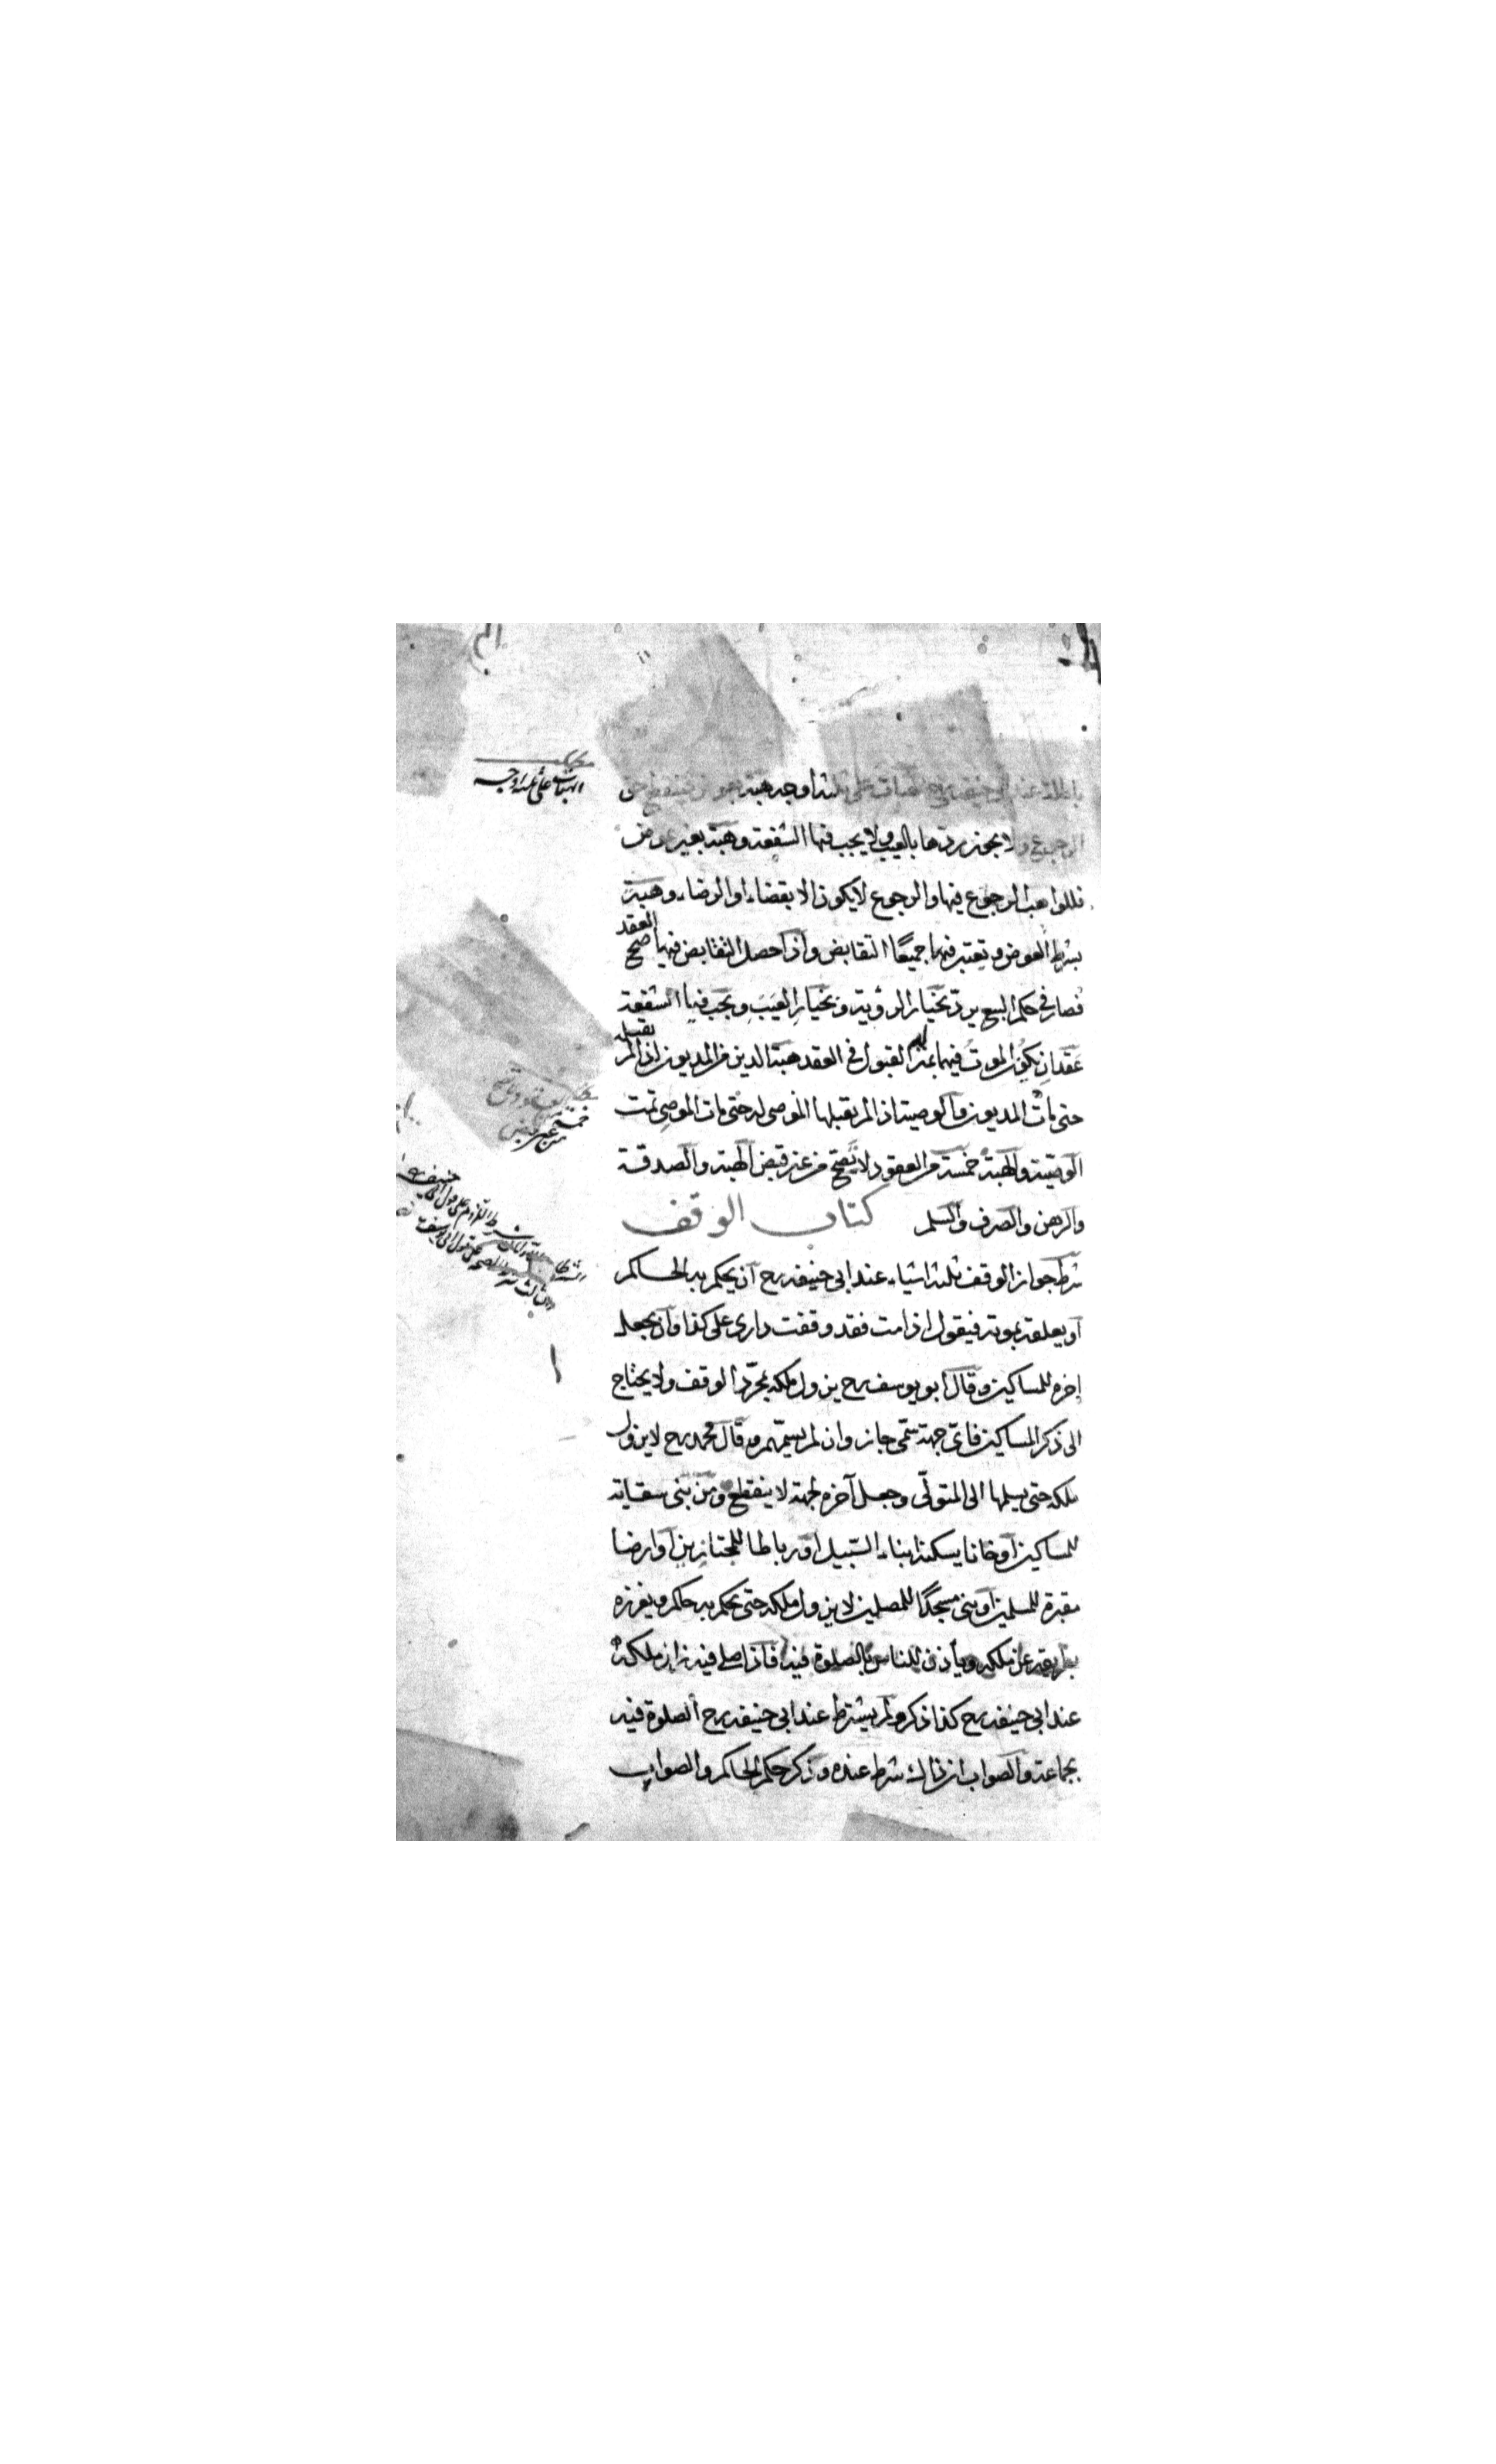 باطلة عند ابي حنيفة رح الهبات على ثلثة اوجه هبة بعوض فينقطع حق
الرجوع ولا يجوز ردها بالعيب ولا يجب فيها الشفعة وهبة بغير عوض
فللواهب الرجوع فيها والرجوع لا يكون الا بقضاء او الرضاء وهبة
بشرط العوض وتعتبر فيهما جميعًا التقابض واذا حصل التقابض فيهما صح العقد
فصار في حكم البيع يرد بخيار الرؤية وبخيار العيب ويجب فيها الشفعة
عقدان يكون الموت فيهما بمنزلة القبول في العقد هبة الدين من المديون اذا لم يقبله
حتى مات المديون والوصية اذا لم يقبلها الموصى له حتى مات الموصى تمت
الوصية والهبة خمسة من العقود لا تصح من غير قبض الهبة والصدقة
والرهن والصرف والسلم كتاب الوقف
شرط جواز الوقف ثلثة اشياء عند ابي حنيفة رح ان يحكم به الحاكم
او يعلقه بموته فيقول اذا مت فقد وقفت داري على كذا وان يجعل
اخره للمساكين وقال ابو يوسف رح يزول ملكه بمجرد الوقف ولا يحتاج
الى ذكر المساكين فاي جهة سمى جاز وان لم يسمهم وقال محمد رح لا يزول
ملكه حتى يسلمها الى المتولى وجعل آخره لجهة لا ينقطع ومن بنى سقاية
للمساكين او خانا يسكنه ابناء السبيل او رباطا للمجتازين او ارضا
مقبرة للمسلمين او بنى مسجدًا للمصلين لا يزول ملكه حتى يحكم به حاكم ويفرزه
بطريقه عن ملكه ويأذن للناس بالصلوة فيه فاذا صلى فيه زال ملكه
عند ابي حنيفة رح كذا ذكر ولم يشترط عند ابي حنيفة رح الصلوة فيه
بجماعة والصواب ان ذلك شرط عنده وذكر حكم الحاكم والصواب
الهبات على ثلثة اوجه